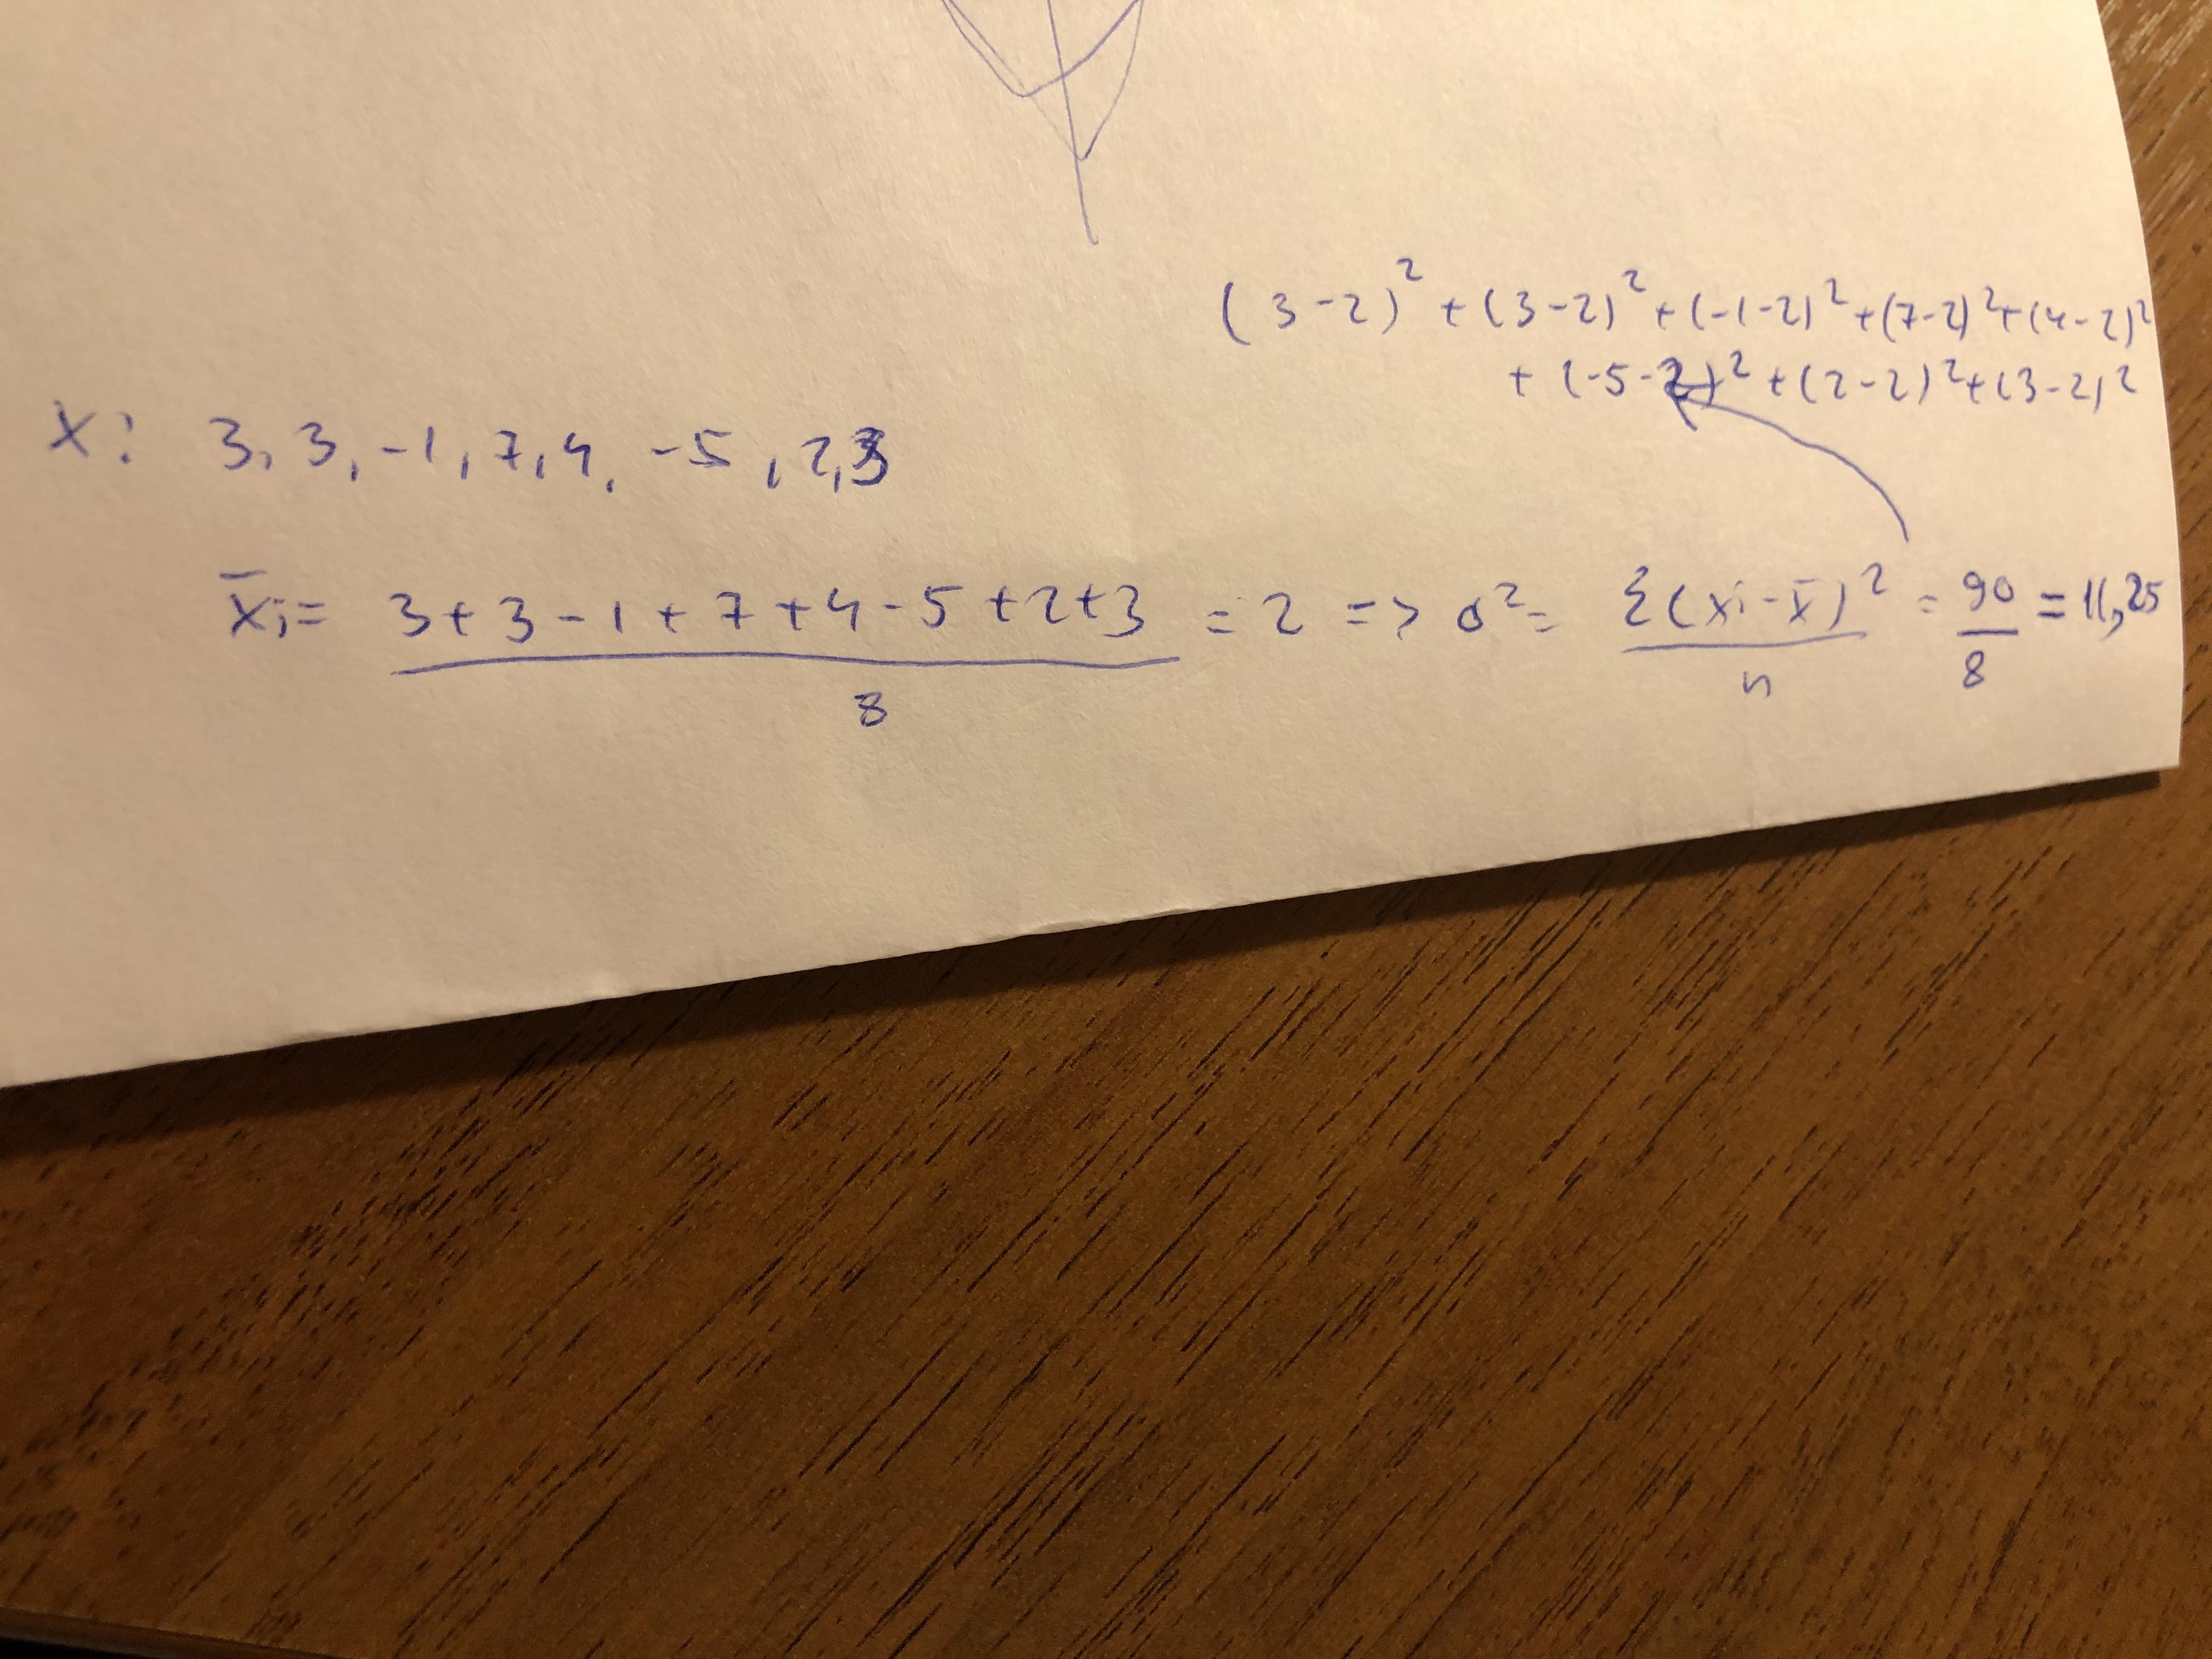 (3-2)² + (3-2)² + (-1-2)² + (7-2)² + (4-2)²
+ (-5-2)² + (2-2)² + (3-2)²
x: 3, 3, -1, 7, 4, -5, 2, 3
x̄i = (3+3-1+7+4-5+2+3)/8 = 2 => σ² = Σ(xi-x̄)²/n = 90/8 = 11,25